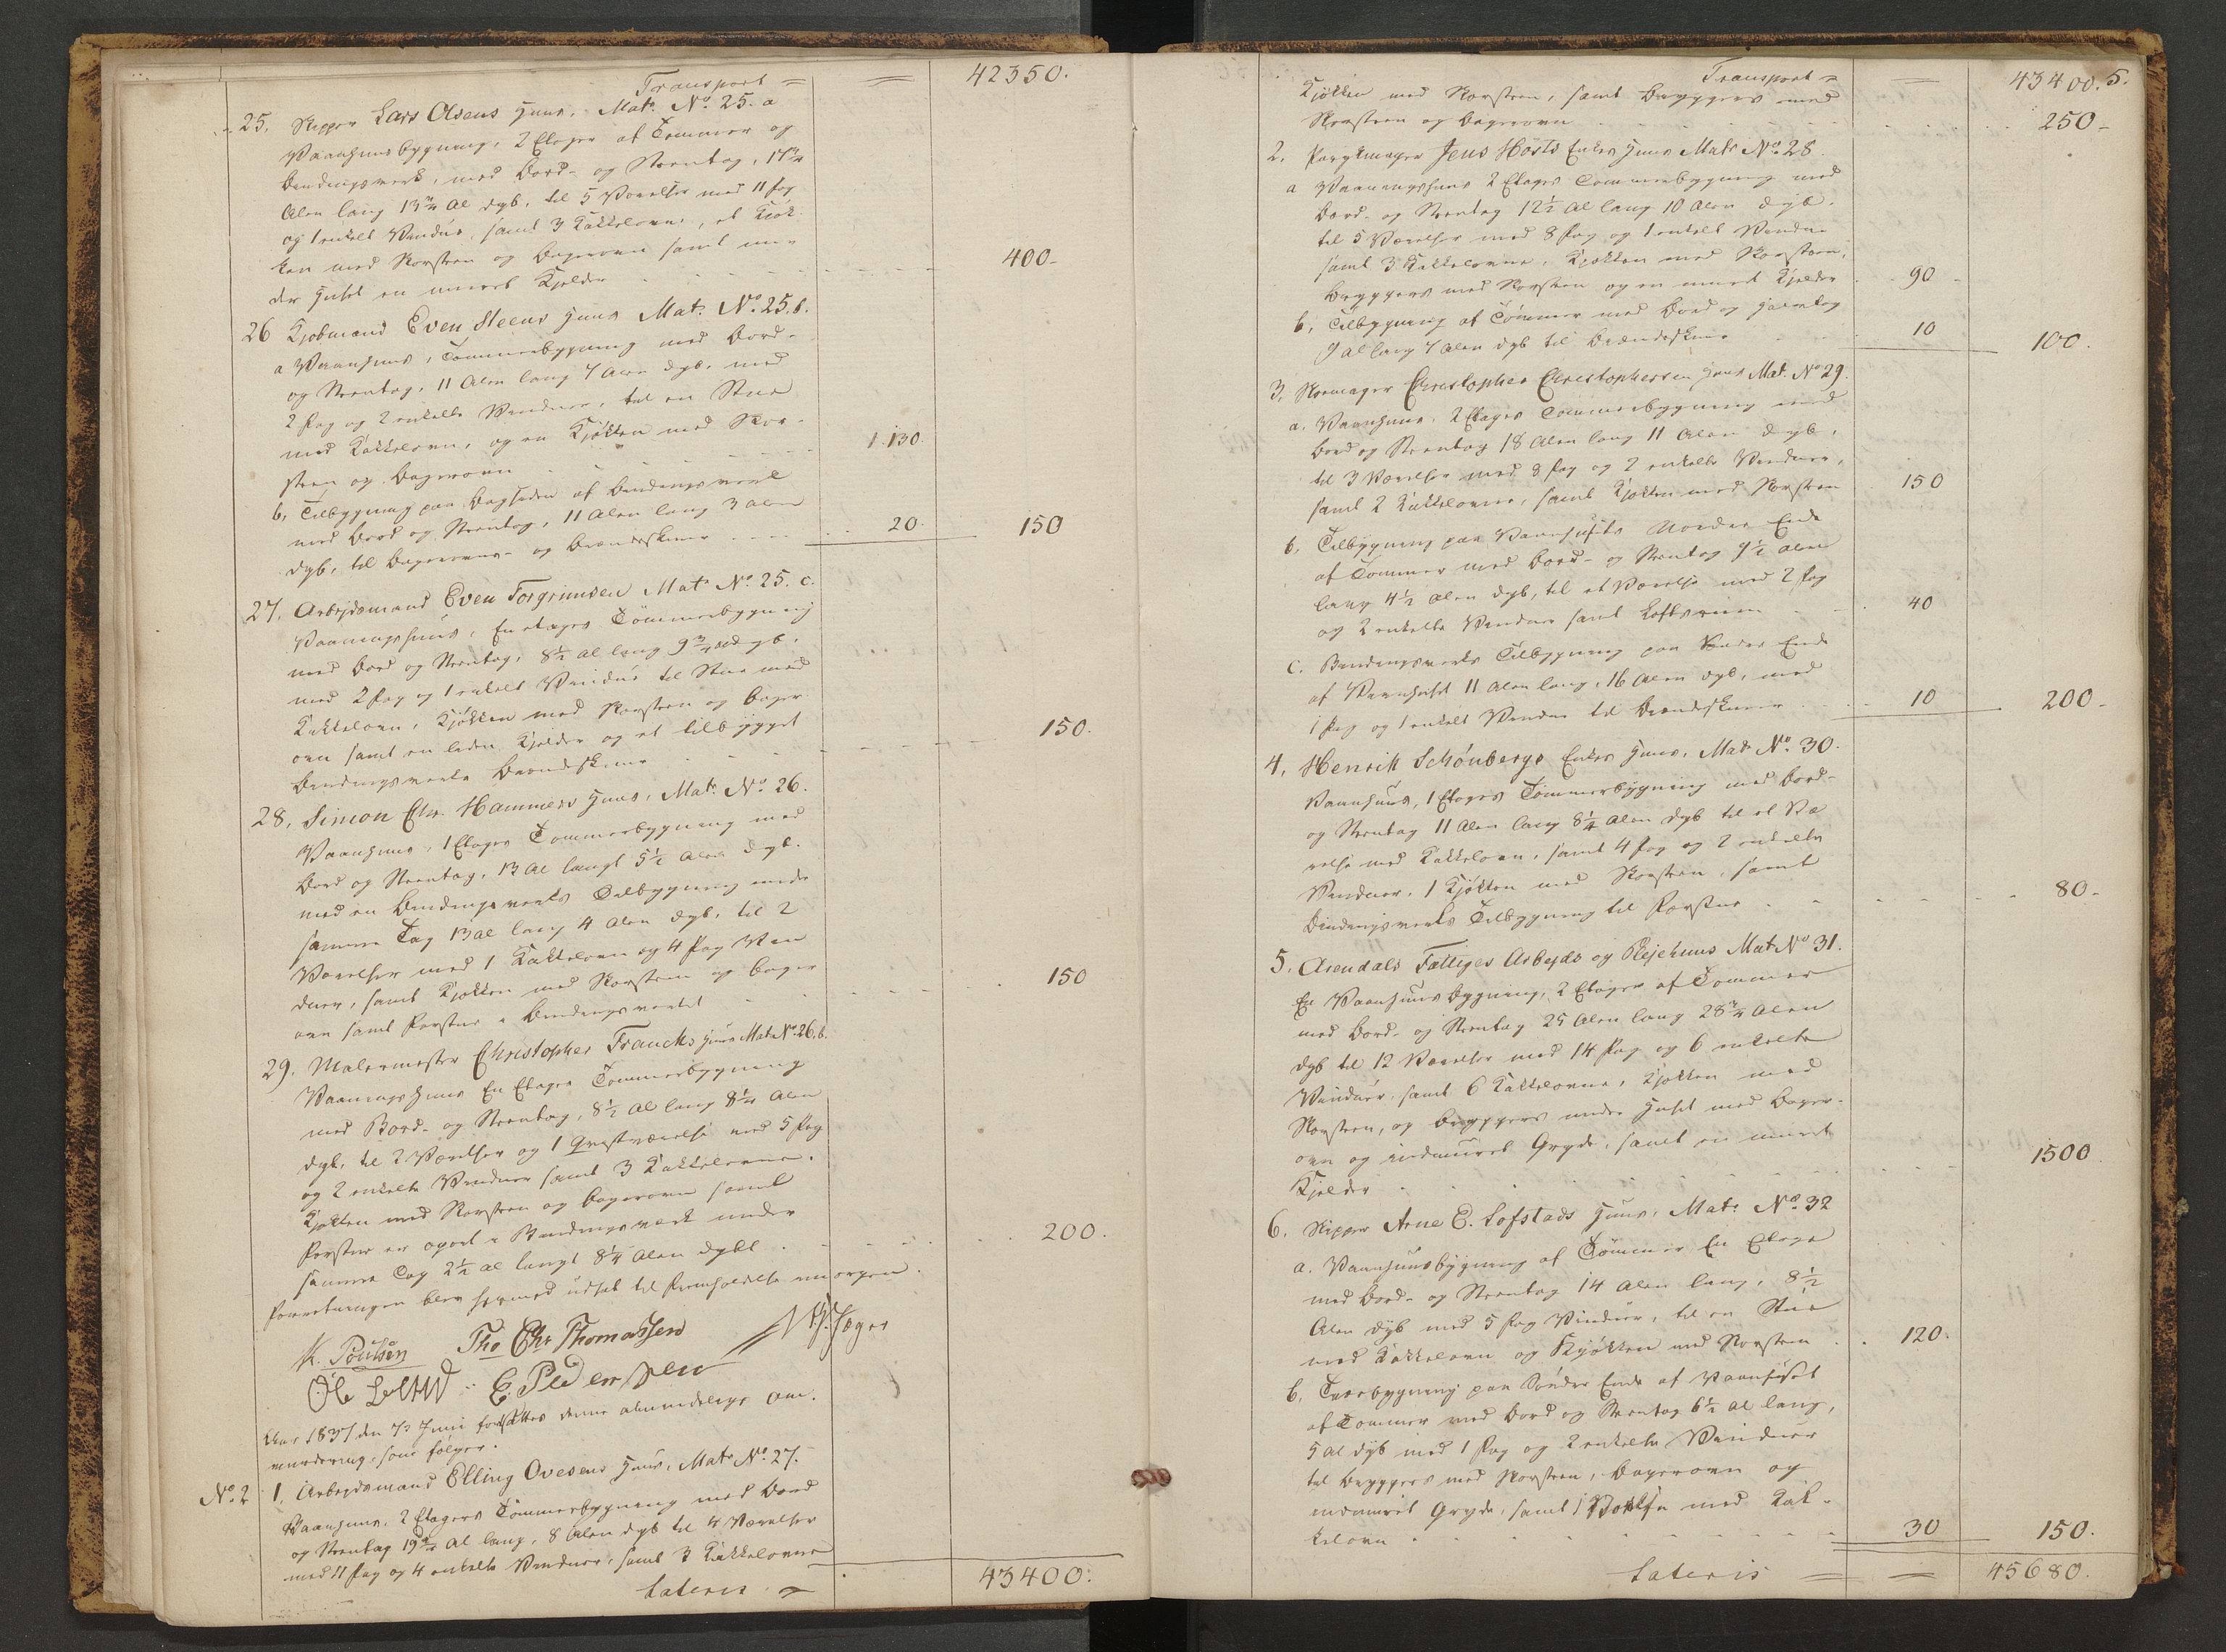 Transport = = 42350.
25. Skipper Lars Olsens Huus, Mat: No. 25. a
Vaanhuusbygning, 2 Etager af Tømmer og
Bindingsverk, med Bord- og Steentag, 17 3/4
Alen lang 13 3/4 Al dyb, til 5 Værelser med 11 Fag
og 1 enkelt Vindue, samt 3 Kakkelovne, et Kjøk-
ken med Skorsteen og Bagerovn samt un-
der Huset en muret Kjelder 400-
26 Kjøbmand Even Steens Huus Mat: No. 25. b.
a Vaanhuus, Tømmerbygning med Bord-
og Steentag, 11 Alen lang 7 Alen dyb, med
2 Fag og 2 enkelte Vinduer, til en Stue
med Kakkelovn, og en Kjøkken med Skor-
steen og Bagerovn 130.
b, Tilbygning paa Bagsiden af Bindingsverk
med Bord og Steentag, 11 Alen lang 3 Alen
dyb, til Bagerovns- og Brændeskuur 20. 150
27. Arbejdsmand Even Torgrimsen Mat: No. 25. c.
Vaaningshuus, En etages Tømmerbygning
med Bord og Steentag, 8 1/2 al lang 9 3/4 al dyb.
med 2 Fag og 1 enkelt Vindue til Stue med
Kakkelovn, Kjøkken med Skorsteen og Bager-
ovn samt en liden Kjelder og et tilbygget
Bindingsverks Brændeskuur 150.
28, Simon Chr. Hammers Huus, Mat: No. 26.
Vaanhuus, 1 Etages Tømmerbygning med
Bord og Steentag, 13 Al langt 5 1/2 Alen dyb.
med en Bindingsverks Tilbygning under
samme Tag 13 al lang 4 Alen dyb, til 2
Værelser med 1 Kakkelovn og 4 Fag Vin
duer, samt Kjøkken med Skorsteen og Bager
ovn samt Forstue i Bindingsverket 150
29. Malermester Christopher Francks Huus Mat No. 26. b.
Vaaningshuus En Etages Tømmerbygning
med Bord- og Steentag, 8 1/2 Al lang 8 1/4 Alen
dyb, til 2 Værelser og 1 Qvistværelse med 5 Fag
og 2 enkelte Vinduer samt 3 Kakkelovne.
Kjøkken med Skorsteen og Bagerovn samt
Forstue er opsat i Bindingsverk under
samme Tag 2 1/2 al langt 8 1/4 Alen dybt 200.
Forretningen blev hermed udsat til Fremholdelse imorgen.
K. Poulsen Tho Chr Thomassen
E. Pedersen
Aar 1837 den 7de Juni fortsattes denne almindelige Om-
vurdering, som følger.
No. 2 1, Arbejdsmand Elling Ovesens Huus, Mat: No. 27.
Vaanhuus, 2 Etagers Tømmerbygning med Bord
og Steentag 19 3/4 Al lang, 8 Alen dyb til 4 Værelser
med 11 Fag og 4 enkelte Vinduer, samt 3 Kakkelovne
Lateris = 43400.
Transport = = 43400. 5.
Kjøkken med Skorsteen, samt Bryggers med
Skorsteen og Bagerovn 250-
2. Jens Hosts Enkes Huus Mat: No. 28.
a Vaaningshuus 2 Etages Tømmerbygning med
Bord- og Steentag 12 1/2 Al lang 10 Alen dyb.
til 5 Værelser med 8 Fag og 1 enkelt Vindue
samt 3 Kakkelovne, Kjøkken med Skorsteen,
Bryggers med Skorsteen og en muret Kjelder 90-
b, Tilbygning af Tømmer med Bord og Steentag
9 Al lang 7 Alen dyb til Brændeskuur 10 100.
3, Skomager Christopher Christophersen Huus Mat. No 29.
a. Vaanhuus, 2 Etages Tømmerbygning med
Bord og Steentag 18 Alen lang 11 Alen dyb,
til 3 Værelser med 8 Fag og 2 enkelte Vinduer,
samt 2 Kakkelovne, samt Kjøkken med Skorsteen 150
b, Tilbygning paa Vaanhusets Nordre Ende
af Tømmer med Bord- og Steentag 9 1/2 Alen
lang 4 1/2 Alen dyb, til et Værelse med 2 Fag
og 2 enkelte Vinduer samt Loftsrum 40
c. Bindingsverks Tilbygning paa Søndre Ende
af Vaanhuset 11 Alen lang, 16 Alen dyb, med
1 Fag og 1 enkelt Vindue til Brændeskuur 10 200-
4, Henrik Schönbergs Enkes Huus, Mat: No. 30.
Vaanhuus, 1 Etages Tømmerbygning med Bord-
og Steentag 11 Alen lang 8 1/4 Alen dyb til et Væ
relse med Kakkelovn, samt 4 Fag og 2 enkelte
Vinduer, 1 Kjøkken med Skorsteen, samt
Bindingsverks Tilbygning til Forstue 80-
5, Arendals Fattiges Arbejds og Plejehuus Mat No 31.
En Vaanhuusbygning, 2 Etager af Tømmer
med Bord- og Steentag 25 Alen lang 28 3/4 Alen
dyb til 12 Værelser med 14 Fag og 6 enkelte
Vinduer, samt 6 Kakkelovne, Kjøkken med
Skorsteen, og Bryggers under Huset med Bager-
ovn og indmuret Gryde, samt en muret
Kjelder 1500
6. Skipper Arne E. Lofstads Huus, Mat: No 32
a. Vaanhuusbygning af Tømmer En Etage
med Bord- og Steentag 14 Alen lang, 8 1/2
Alen dyb med 5 Fag Vinduer, til en Stue
med Kakkelovn og Kjøkken med Skorsteen 120.
b, Tverbygning paa Søndre Ende af Vaanhuset
af Tømmer med Bord og Steentag 6 1/2 Al lang,
5 Al dyb med 1 Fag og 2 enkelte Vinduer
til Bryggers med Skorsteen, Bagerovn og
indmuret Gryde, samt 1 Værelse med Kak-
kelovn 30 150.
Lateris = = 45680.